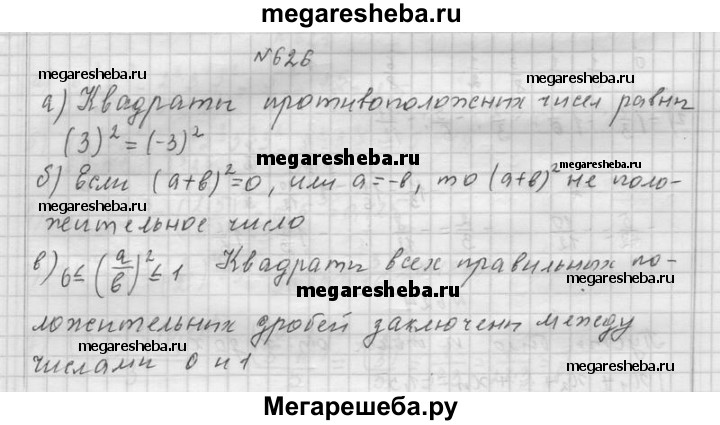 megaresheba.ru
№626
megaresheba.ru megaresheba.ru
а) Квадраты противоположных чисел равны
(3)² = (-3)²
megaresheba.ru megaresheba.ru
б) Если (а+в)²=0, или а=-в, то (а+в)² не поло-
megaresheba.ru
жительное число
в) 0≤(а/в)²≤1 Квадраты всех правильных по-
megaresheba.ru megaresheba.ru
ложительных дробей заключены между
megaresheba.ru megaresheba.ru
числами 0 и 1
Мегарешеба.ру